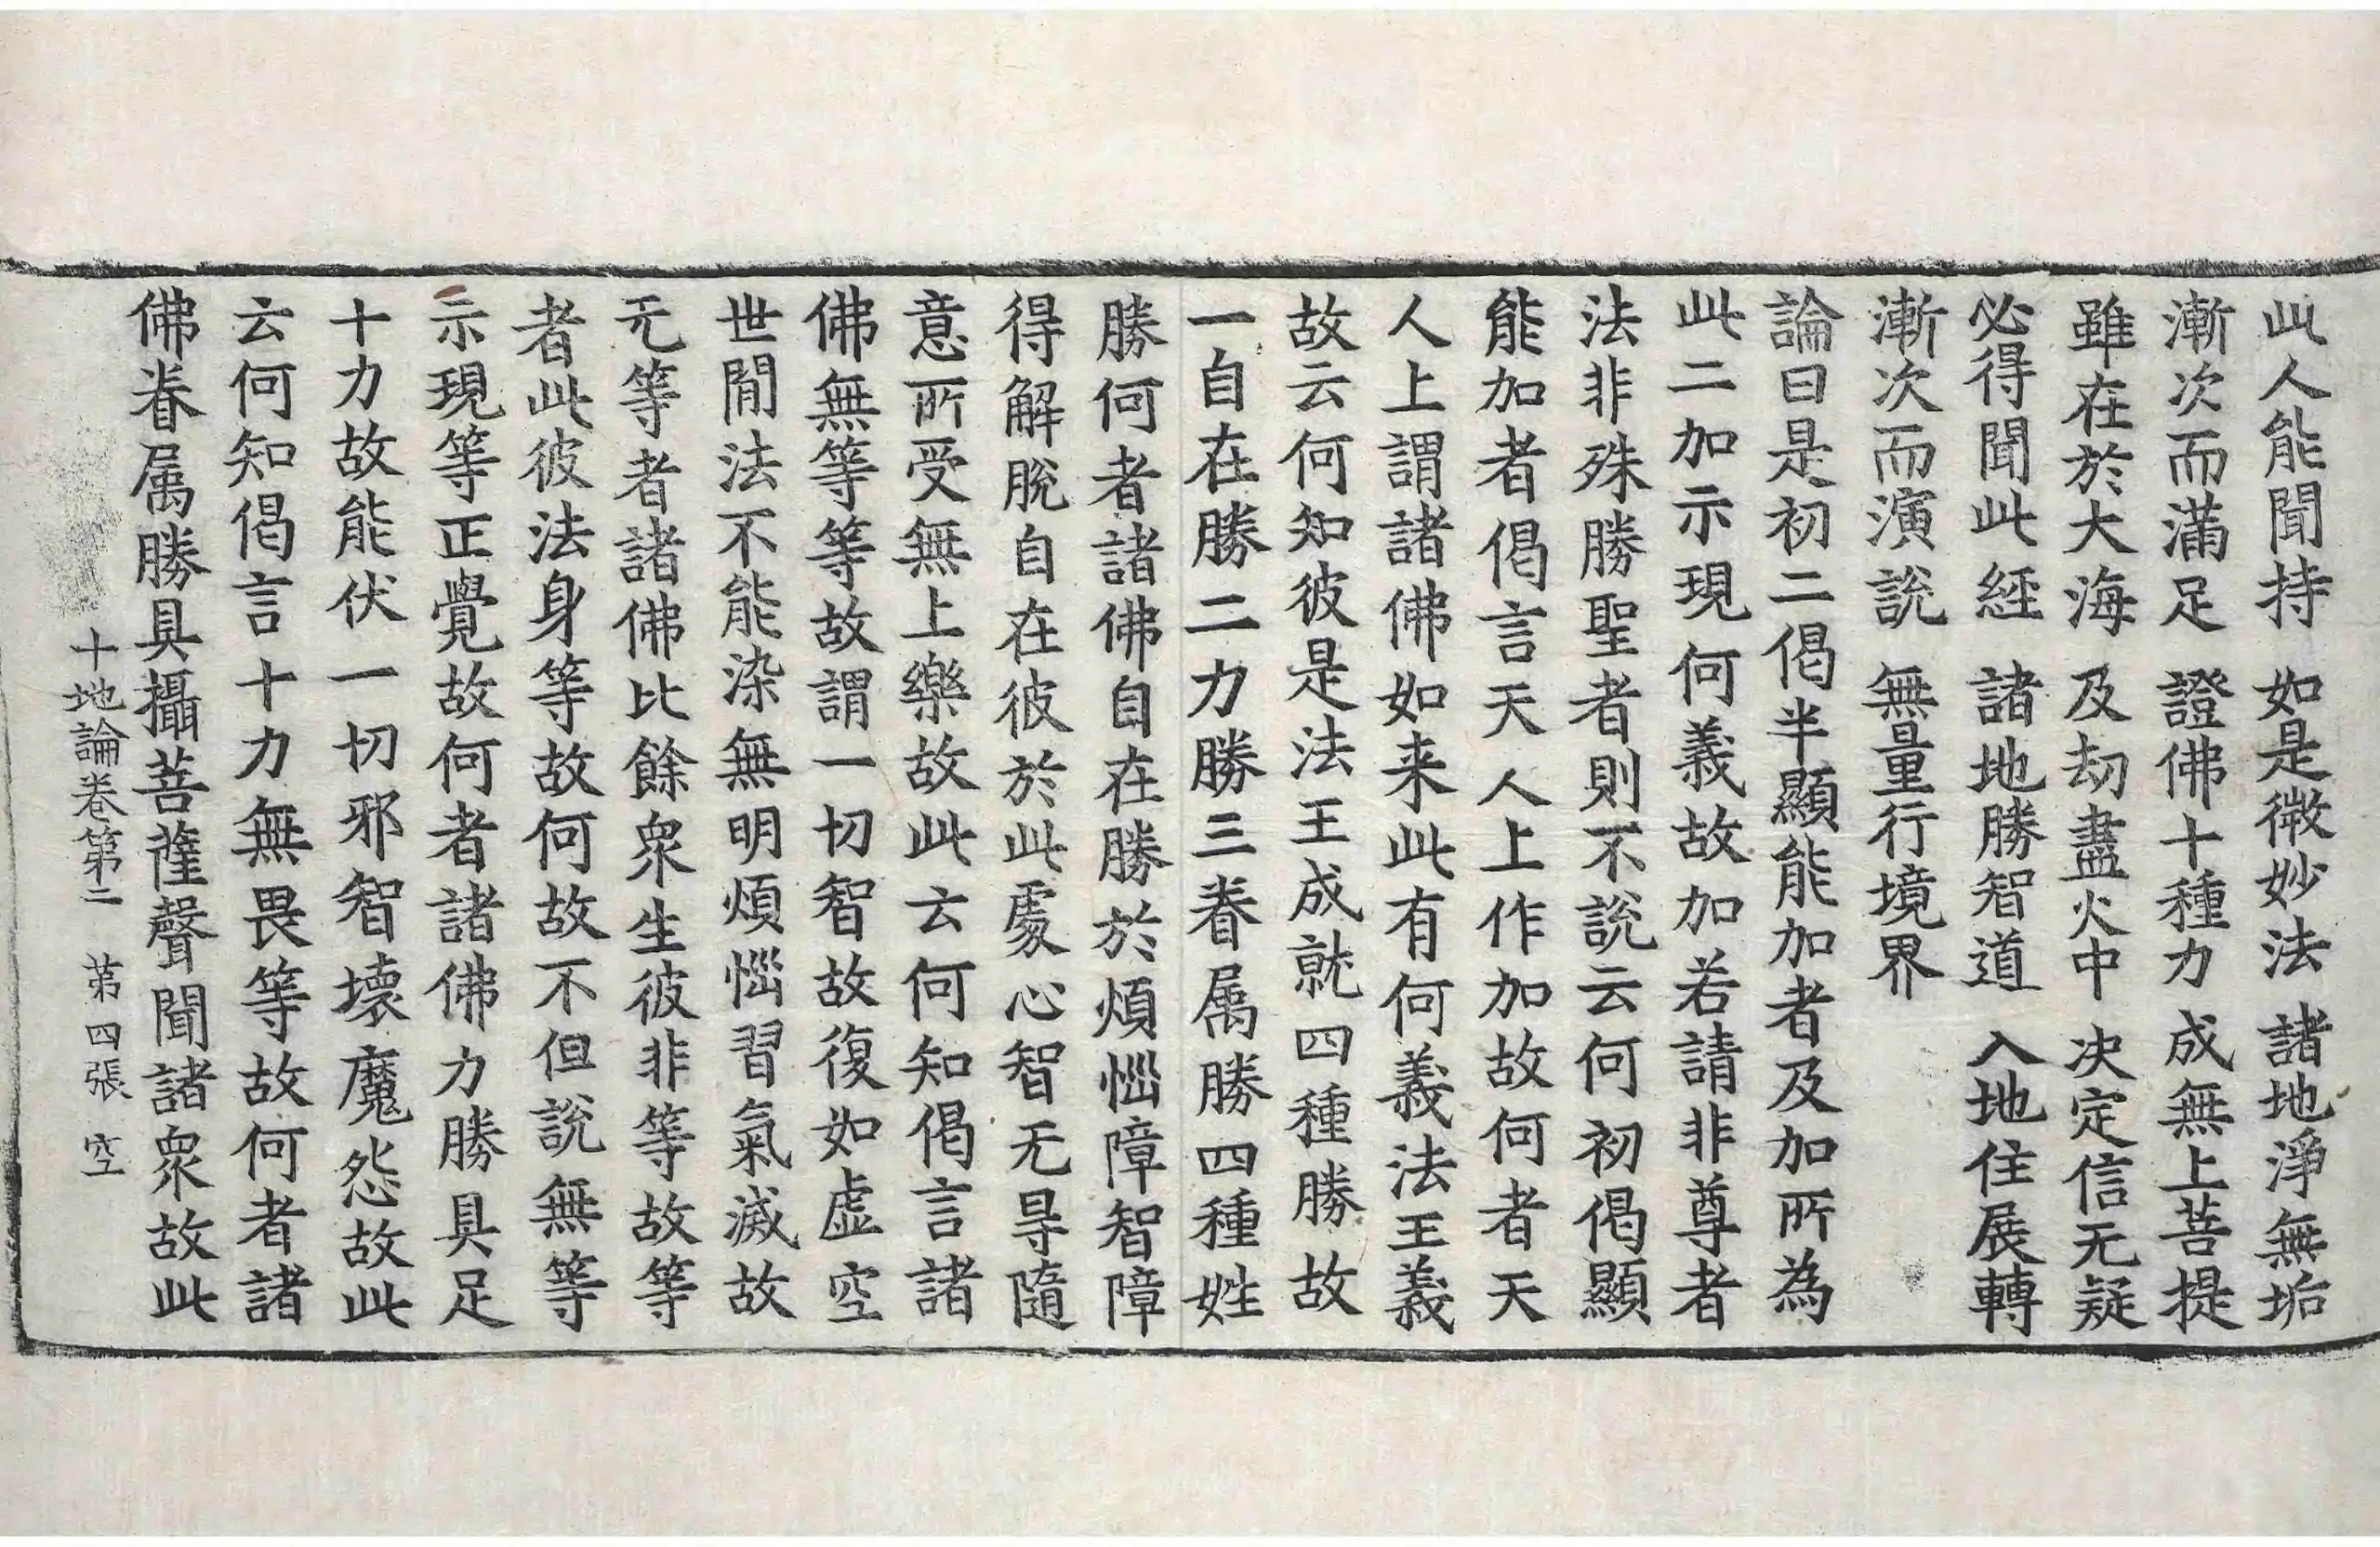 此人能聞持　如是微妙法　諸地淨無垢
漸次而滿足　證佛十種力　成無上菩提
雖在於大海　及劫盡火中　决定信无疑
必得聞此經　諸地勝智道　入地住展轉
漸次而演說　無量行境界
論曰是初二偈半顯能加者及加所為
此二加示現何義故加若請非尊者
法非殊勝聖者則不說云何初偈顯
能加者偈言天人上作加故何者天
人上謂諸佛如来此有何義法王義
故云何知彼是法王成就四種勝故
一自在勝二力勝三眷属勝四種姓
勝何者諸佛自在勝於煩惱障智障
得解脫自在彼於此處心智无㝵隨
意所受無上樂故此云何知偈言諸
佛無等等故謂一切智故復如虛空
世閒法不能染無明煩惱習氣滅故
无等者諸佛比餘衆生彼非等故等
者此彼法身等故何故不但說無等
示現等正覺故何者諸佛力勝具足
十力故能伏一切邪智壞魔怨故此
云何知偈言十力無畏等故何者諸
佛眷属勝具攝菩薩聲聞諸衆故此
十地論卷第二　苐四張　空